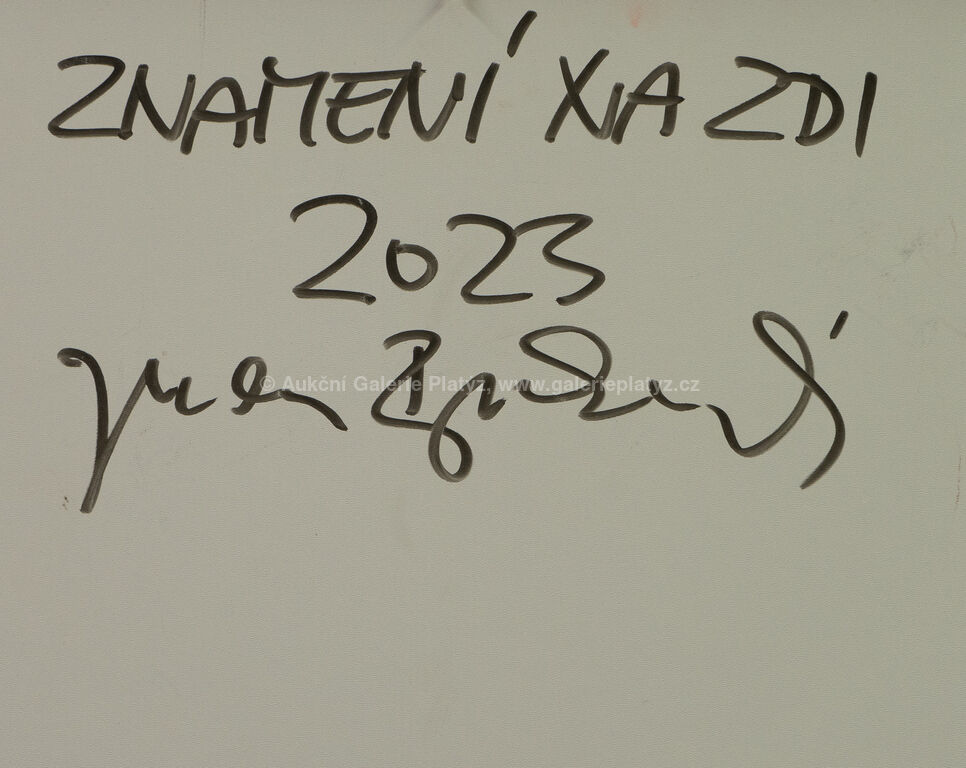 ZNAMENÍ NA ZDI
2023
© Aukční Galerie Platýz, www.galerieplatyz.cz